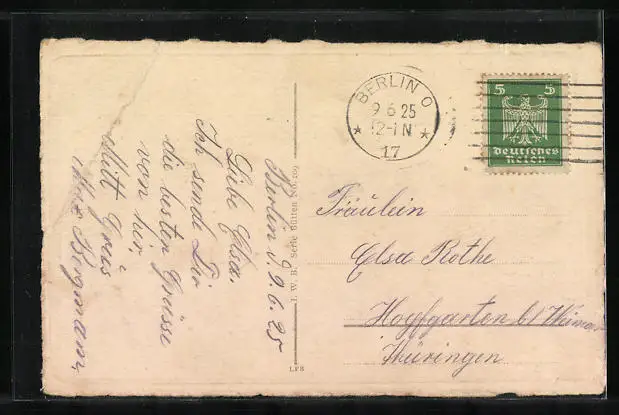 Berlin d 9.6.25
Liebe Elsa.
Ich sende Dir
die besten Grüsse
von hir
Mitt Grüs
Bergmann
I. W. B. Serie Bütten No. 209
LFB
BERLIN O
9 6 25
12-1 N
★ ★
17
5 5
Deutsches
Reich
Fräulein
Elsa Rothe
Hopfgarten b/ Weimar
Thüringen